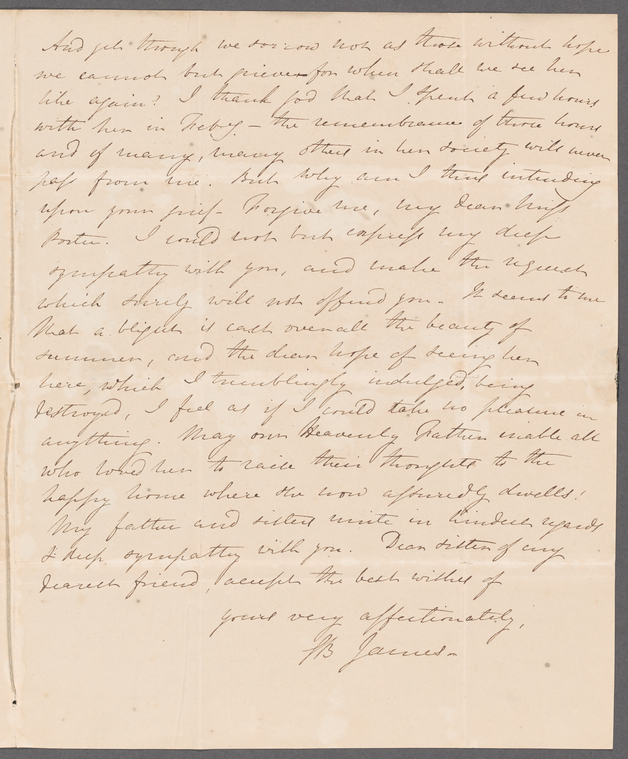 And yet though we sorrow not as those without hope
we cannot but grieve for when shall we see her
like again? I thank God that I spent a few hours
with her in Feby - the remembrance of those hours
and of many, many others in her society will never
pass from me. But why am I thus intruding
upon your grief - Forgive me, my dear Miss
Porter. I could not but express my deep
sympathy with you, and make the request
which surely will not offend you - It seems to me
that a blight is cast over all the beauty of
summer, and the dear hope of seeing her
here, which I tremblingly indulged, being
destroyed, I feel as if I could take no pleasure in
anything. May our Heavenly Father enable all
who loved her to raise their thoughts to the
happy home where she now assuredly dwells!
My father and sisters unite in kindest regards
& deep sympathy with you. Dear sister of my
dearest friend, accept the best wishes of
yours very affectionately,
James -